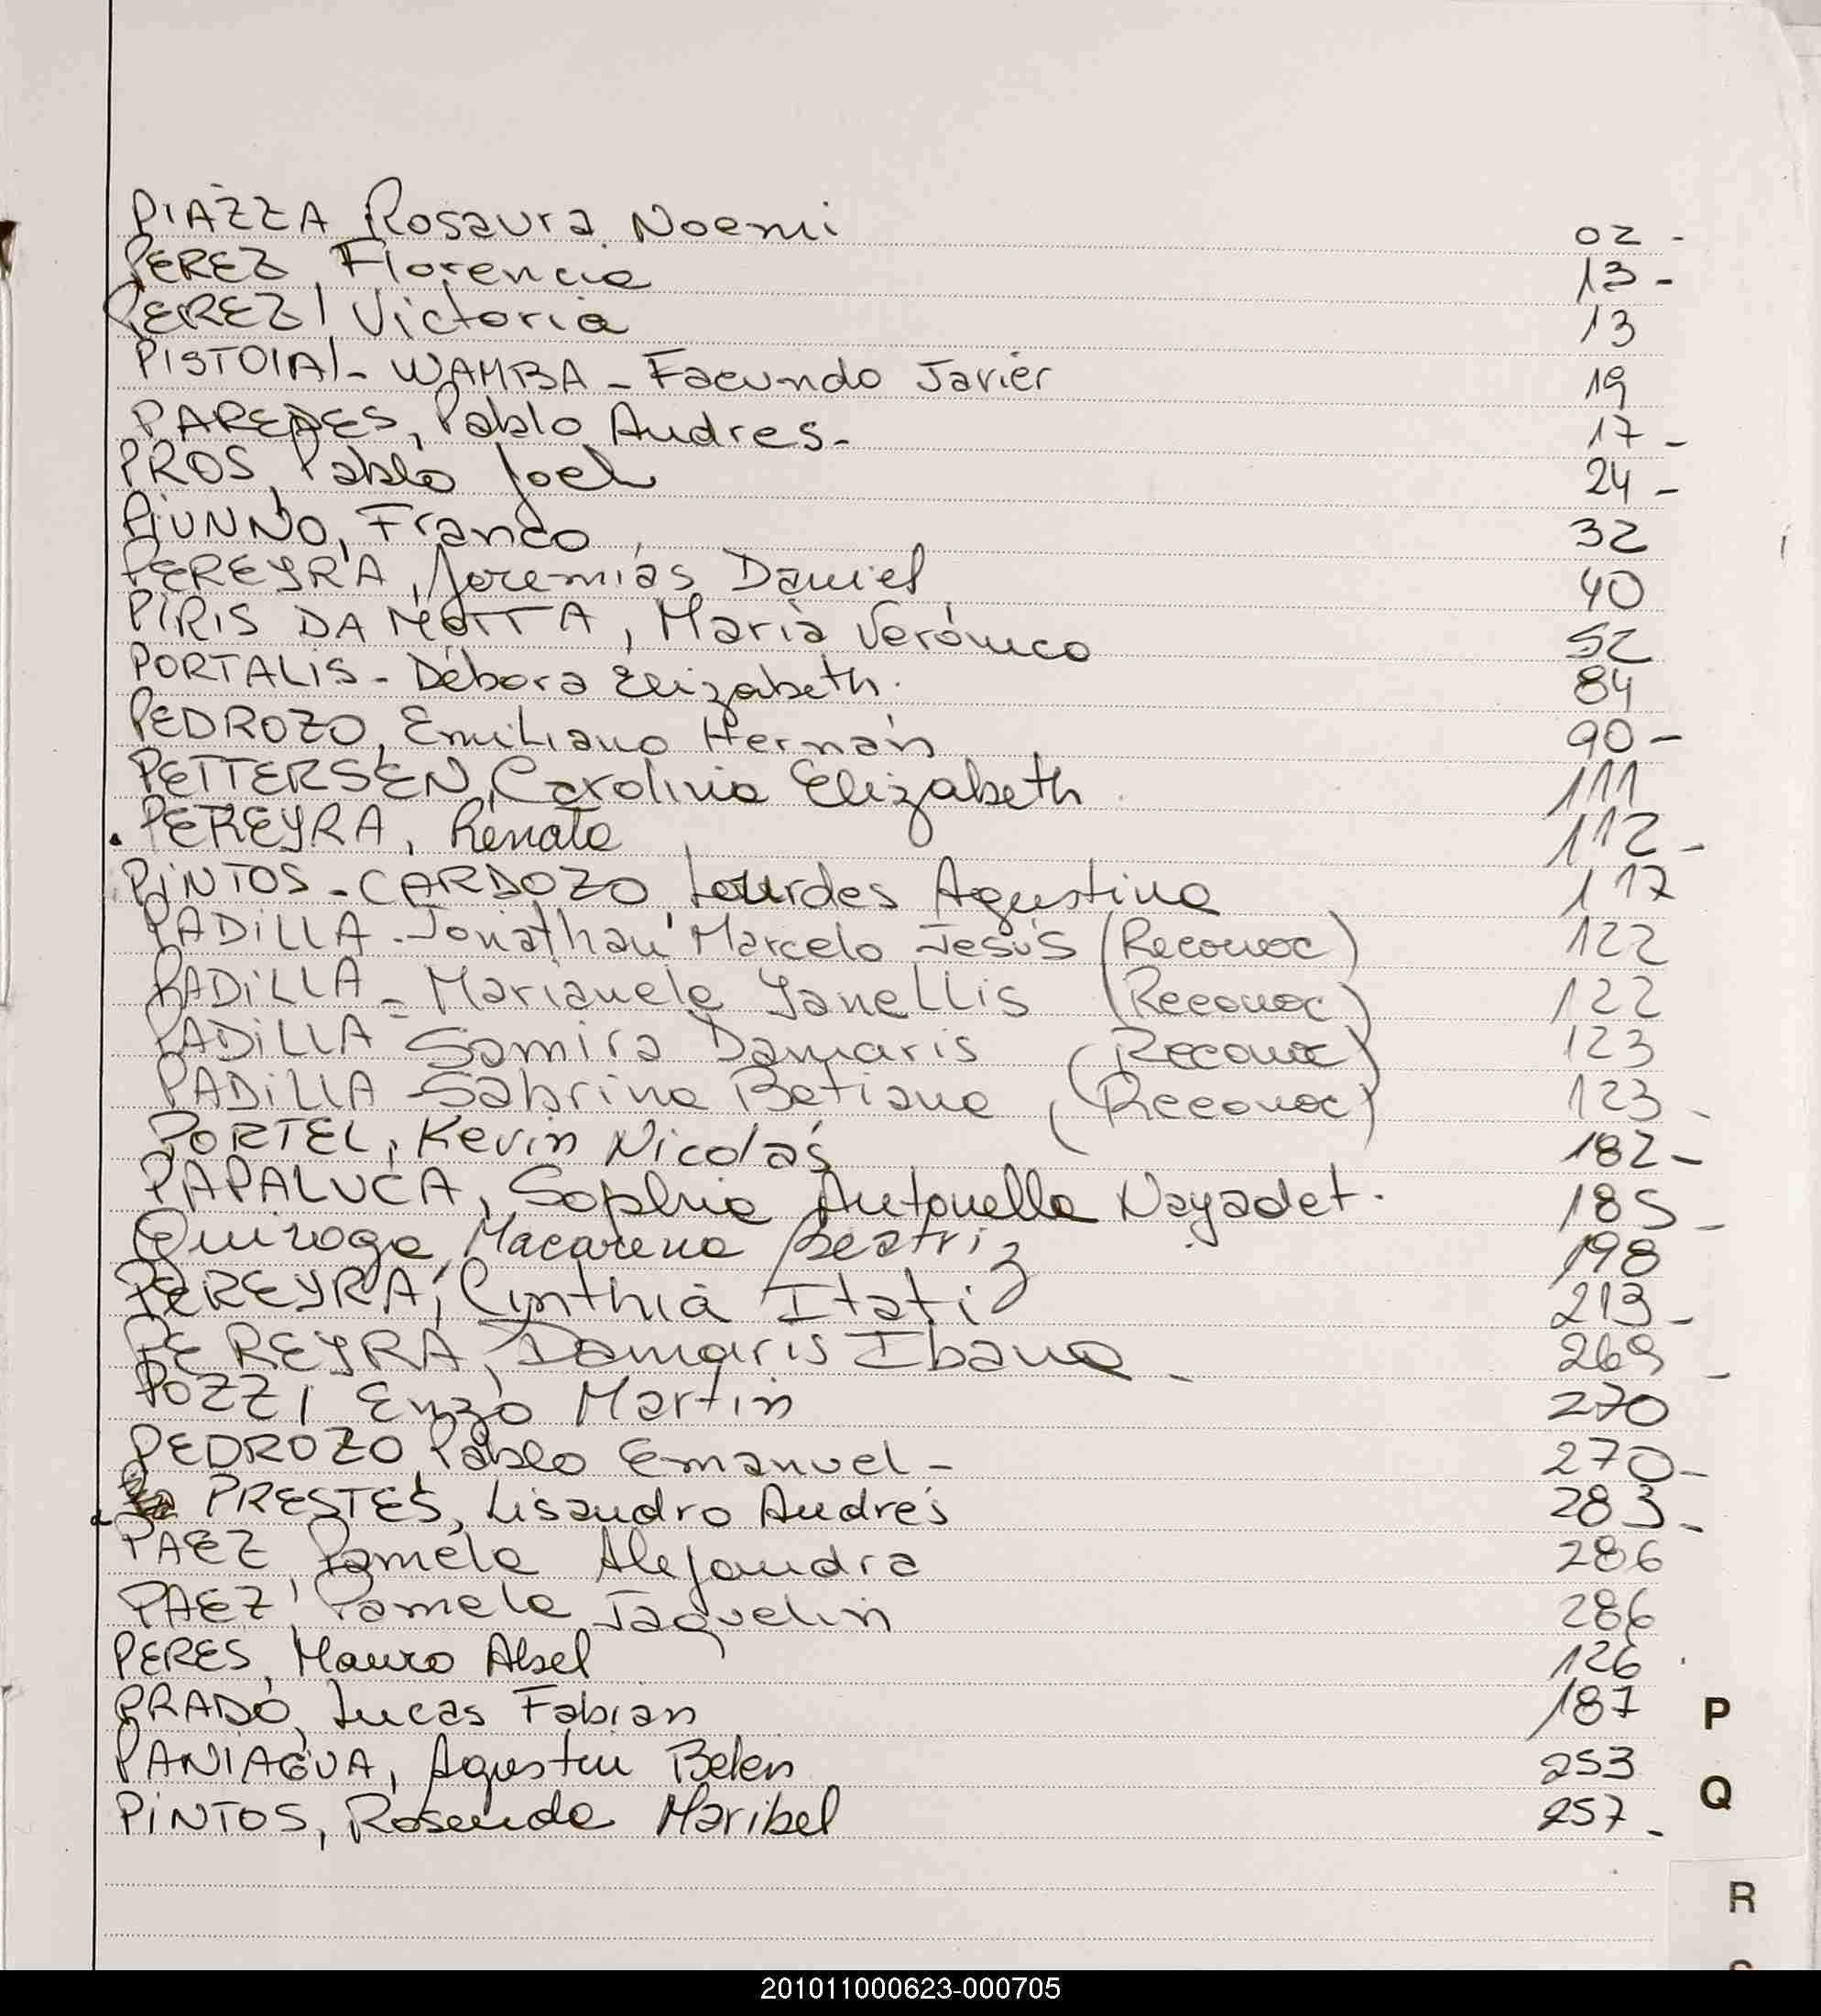 PIAZZA Rosaura Noemi 02 -
PEREZ, Florencia 13 -
PEREZ, Victoria 13
PISTOIA - WAMBA - Facundo Javier 19
PAREDES, Pablo Andres - 17 -
PROS, Pablo Joel 24 -
PIUNNO, Franco 32
PEREYRA, Jeremías Daniel 40
PIRIS DA MOTTA, María Verónica 52
PORTALIS - Débora Elizabeth. 84
PEDROZO, Emiliano Hernán 90 -
PETTERSEN, Carolina Elizabeth 111
. PEREYRA, Renata 112 -
PINTOS - CARDOZO, Lourdes Agustina 117
PADILLA - Jonathan Marcelo Jesús (Reconoc) 122
PADILLA - Marianela Yanellis (Reconoc) 122
PADILLA Samira Damaris (Reconoc) 123
PADILLA - Sabrina Betiana (Reconoc) 123 -
PORTEL, Kevin Nicolás 182 -
PAPALUCA, Sophia Antonella Nayadet. 185 -
Quiroga, Macarena Beatriz 198
PEREYRA, Cinthia Itati 213 -
PEREYRA, Damaris Ibana - 269 -
POZZI, Enzo Martin 270
PEDROZO, Pablo Emanuel - 270 -
PRESTES, Lisandro Andrés 283 -
PAEZ, Pamela Alejandra 286
PAEZ, Pamela Jaquelin 286
PERES, Mauro Abel 126
PRADO, Lucas Fabian 187
PANIAGUA, Agustin Belen 253
PINTOS, Rosenda Maribel 257 -
P
Q
R
201011000623-000705